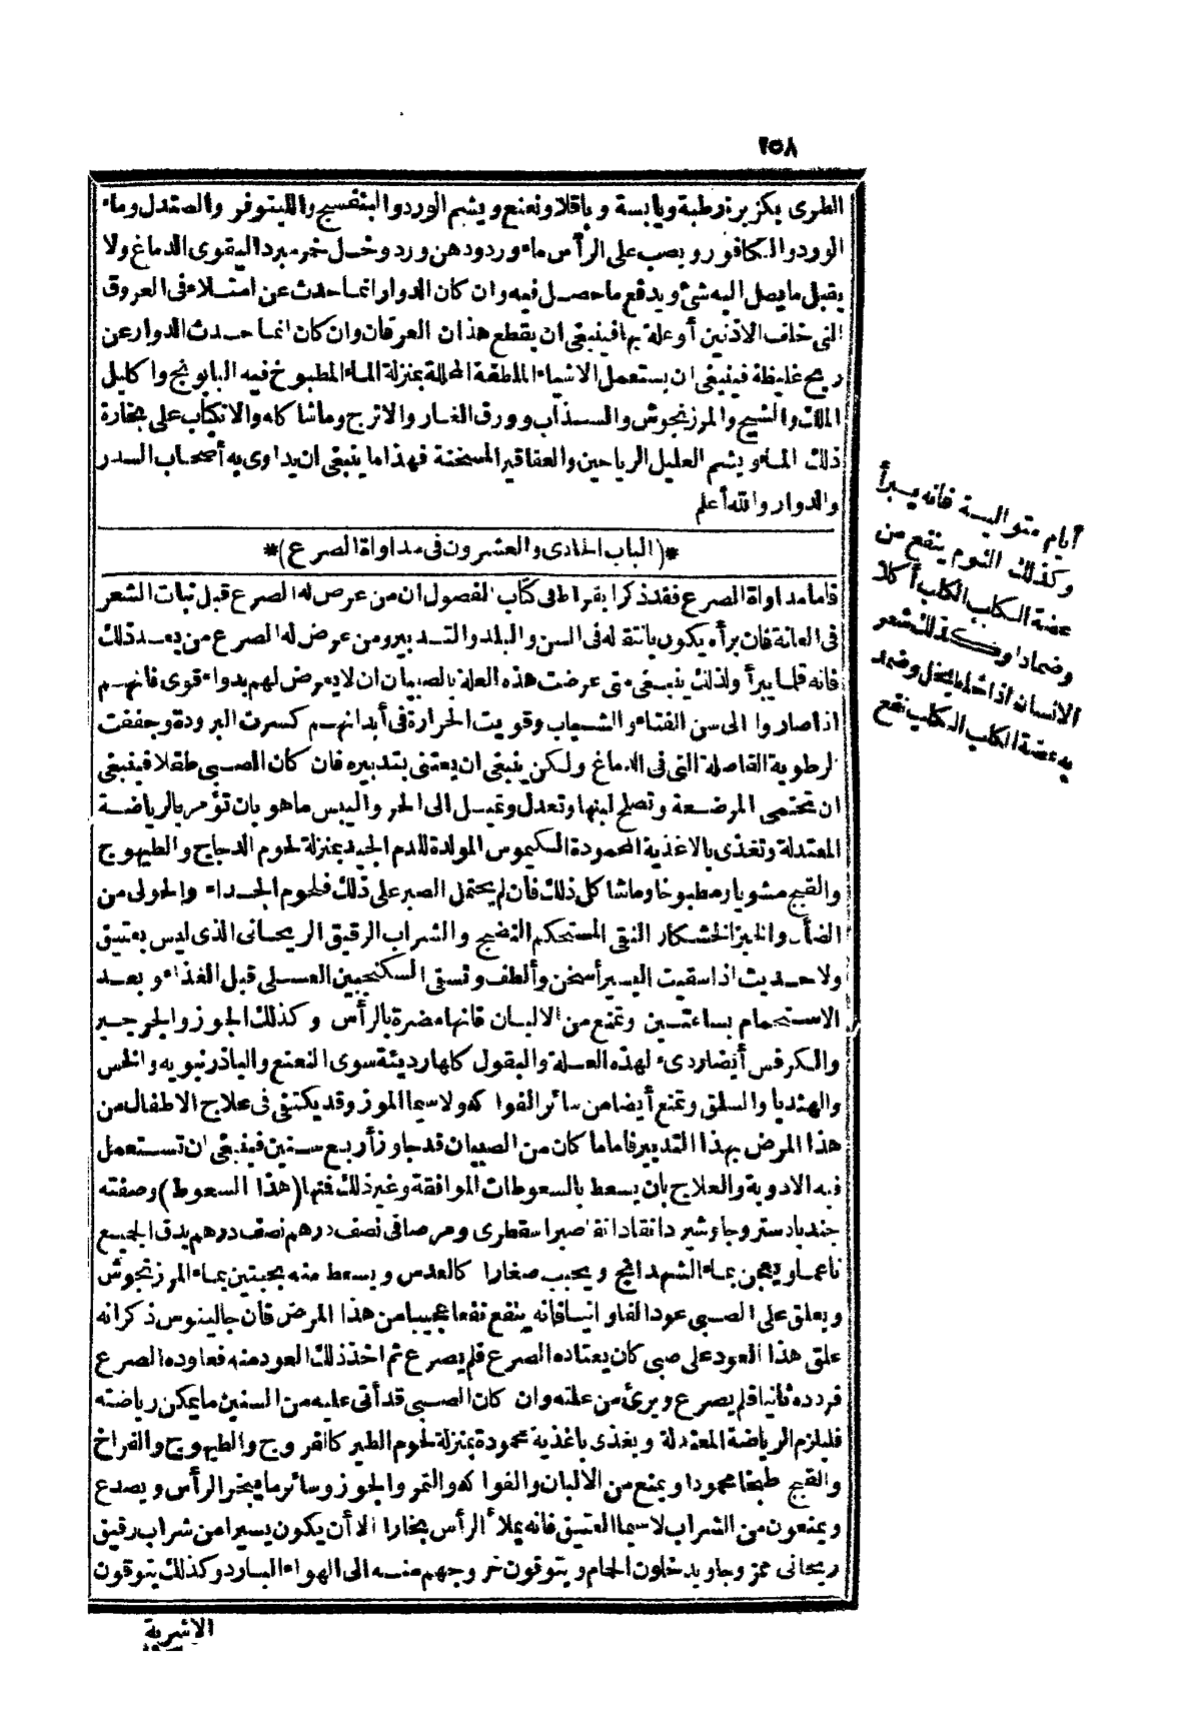 ٢٥٨
الطرى بكزبرة رطبة ويابسة وباقلا ونعنع ويشم الورد والبنفسج والنيلوفر والصندل وماء
الورد والكافور ويصب على الرأس ماء ورد ودهن ورد وخل خمر مبردا ليقوى الدماغ ولا
يقبل ما يصل اليه شئ ويدفع ما حصل فيه وان كان الدوار انما حدث عن امتلاء فى العروق
التى خلف الاذنين أو علة بها فينبغى ان يقطع هذان العرقان وان كان انما حدث الدوار عن
ريح غليظة فينبغى ان يستعمل الاشياء الملطفة المحللة بمنزلة الماء المطبوخ فيه البابونج واكليل
الملك والشيح والمرزنجوش والسذاب وورق الغار والاترج وما شاكله والانكباب على بخارة
ذلك الماء ويشم العليل الرياحين والعقاقير المسخنة فهذا ما ينبغى ان يداوى به أصحاب السدر
والدوار والله أعلم
*(الباب الحادى والعشرون فى مداواة الصرع)*
فاما مداواة الصرع فقد ذكر ابقراط فى كتاب الفصول ان من عرض له الصرع قبل نبات الشعر
فى العانة فان برأه يكون بانتقاله فى السن والبلد والتدبير ومن عرض له الصرع من بعد ذلك
فانه قلما يبرأ ولذلك ينبغى متى عرضت هذه العلة بالصبيان ان لا يعرض لهم بدواء قوى فانهم
اذا صاروا الى سن الفتاء والشباب وقويت الحرارة فى أبدانهم كسرت البرودة وجففت
الرطوبة الفاضلة التى فى الدماغ ولكن ينبغى ان يعتنى بتدبيره فان كان الصبى طفلا فينبغى
ان تحتمى المرضعة وتصلح لبنها وتعدل وتميل الى الحر واليبس ما هو بان تؤمر بالرياضة
المعتدلة وتغذى بالاغذية المحمودة الكيموس المولدة للدم الجيد بمنزلة لحوم الدجاج والطيهوج
والقبج مشويا ومطبوخا وما شاكل ذلك فان لم يحتمل الصبر على ذلك فلحوم الجداء والحولى من
الضأن والخبز الخشكار النقى المستحكم النضيج والشراب الرقيق الريحانى الذى ليس بعتيق
ولا حديث اذا سقيت اليسير أسخن وألطف وتسقى السكنجبين العسلى قبل الغذاء وبعد
الاستحمام بساعتين وتمنع من الالبان فانها مضرة بالرأس وكذلك الجوز والجرجير
والكرفس أيضا ردىء لهذه العلة والبقول كلها رديئة سوى النعنع والباذرنبويه والخس
والهندبا والسلق وتمنع أيضا من سائر الفواكه ولا سيما الموز وقد يكتفى فى علاج الاطفال من
هذا المرض بهذا التدبير فاما ما كان من الصبيان قد جاوز أربع سنين فينبغى ان تستعمل
فيه الادوية والعلاج بان يسعط بالسعوطات الموافقة وغير ذلك فمنها (هذا السعوط) وصفته
جندبادستر وجاوشير دانقا دانقا صبر اسقطرى ومر صافى نصف درهم نصف درهم يدق الجميع
ناعما ويعجن بماء الشهدانج ويحبب صغارا كالعدس ويسعط منه بحبتين بماء المرزنجوش
ويعلق على الصبى عود الفاوانيا فانه ينفع نفعا عجيبا من هذا المرض فان جالينوس ذكر انه
علق هذا العود على صبى كان يعتاده الصرع فلم يصرع ثم اخذ ذلك العود منه فعاوده الصرع
فردده ثانيا فلم يصرع وبرئ من علته وان كان الصبى قد أتى عليه من السنين ما يمكن رياضته
فليلزم الرياضة المعتدلة ويغذى باغذية محمودة بمنزلة لحوم الطير كالفروج والطيهوج والفراخ
والقبج طبخا محمودا ويمنع من الالبان والفواكه والتمر والجوز وسائر ما يبخر الرأس ويصدع
ويمنعون من الشراب لا سيما العتيق فانه يملأ الرأس بخارا الا أن يكون يسيرا من شراب رقيق
ريحانى ممزوجا ويدخلون الحمام ويتوقون خروجهم منه الى الهواء البارد وكذلك يتوقون
الاشربة
أيام متوالية فانه يبرأ
وكذلك الثوم ينفع من
عضة الكلب الكلب أكلا
وضمادا وكذلك شعر
الانسان اذا خلط بخل وضمد
به عضة الكلب الكلب نفع